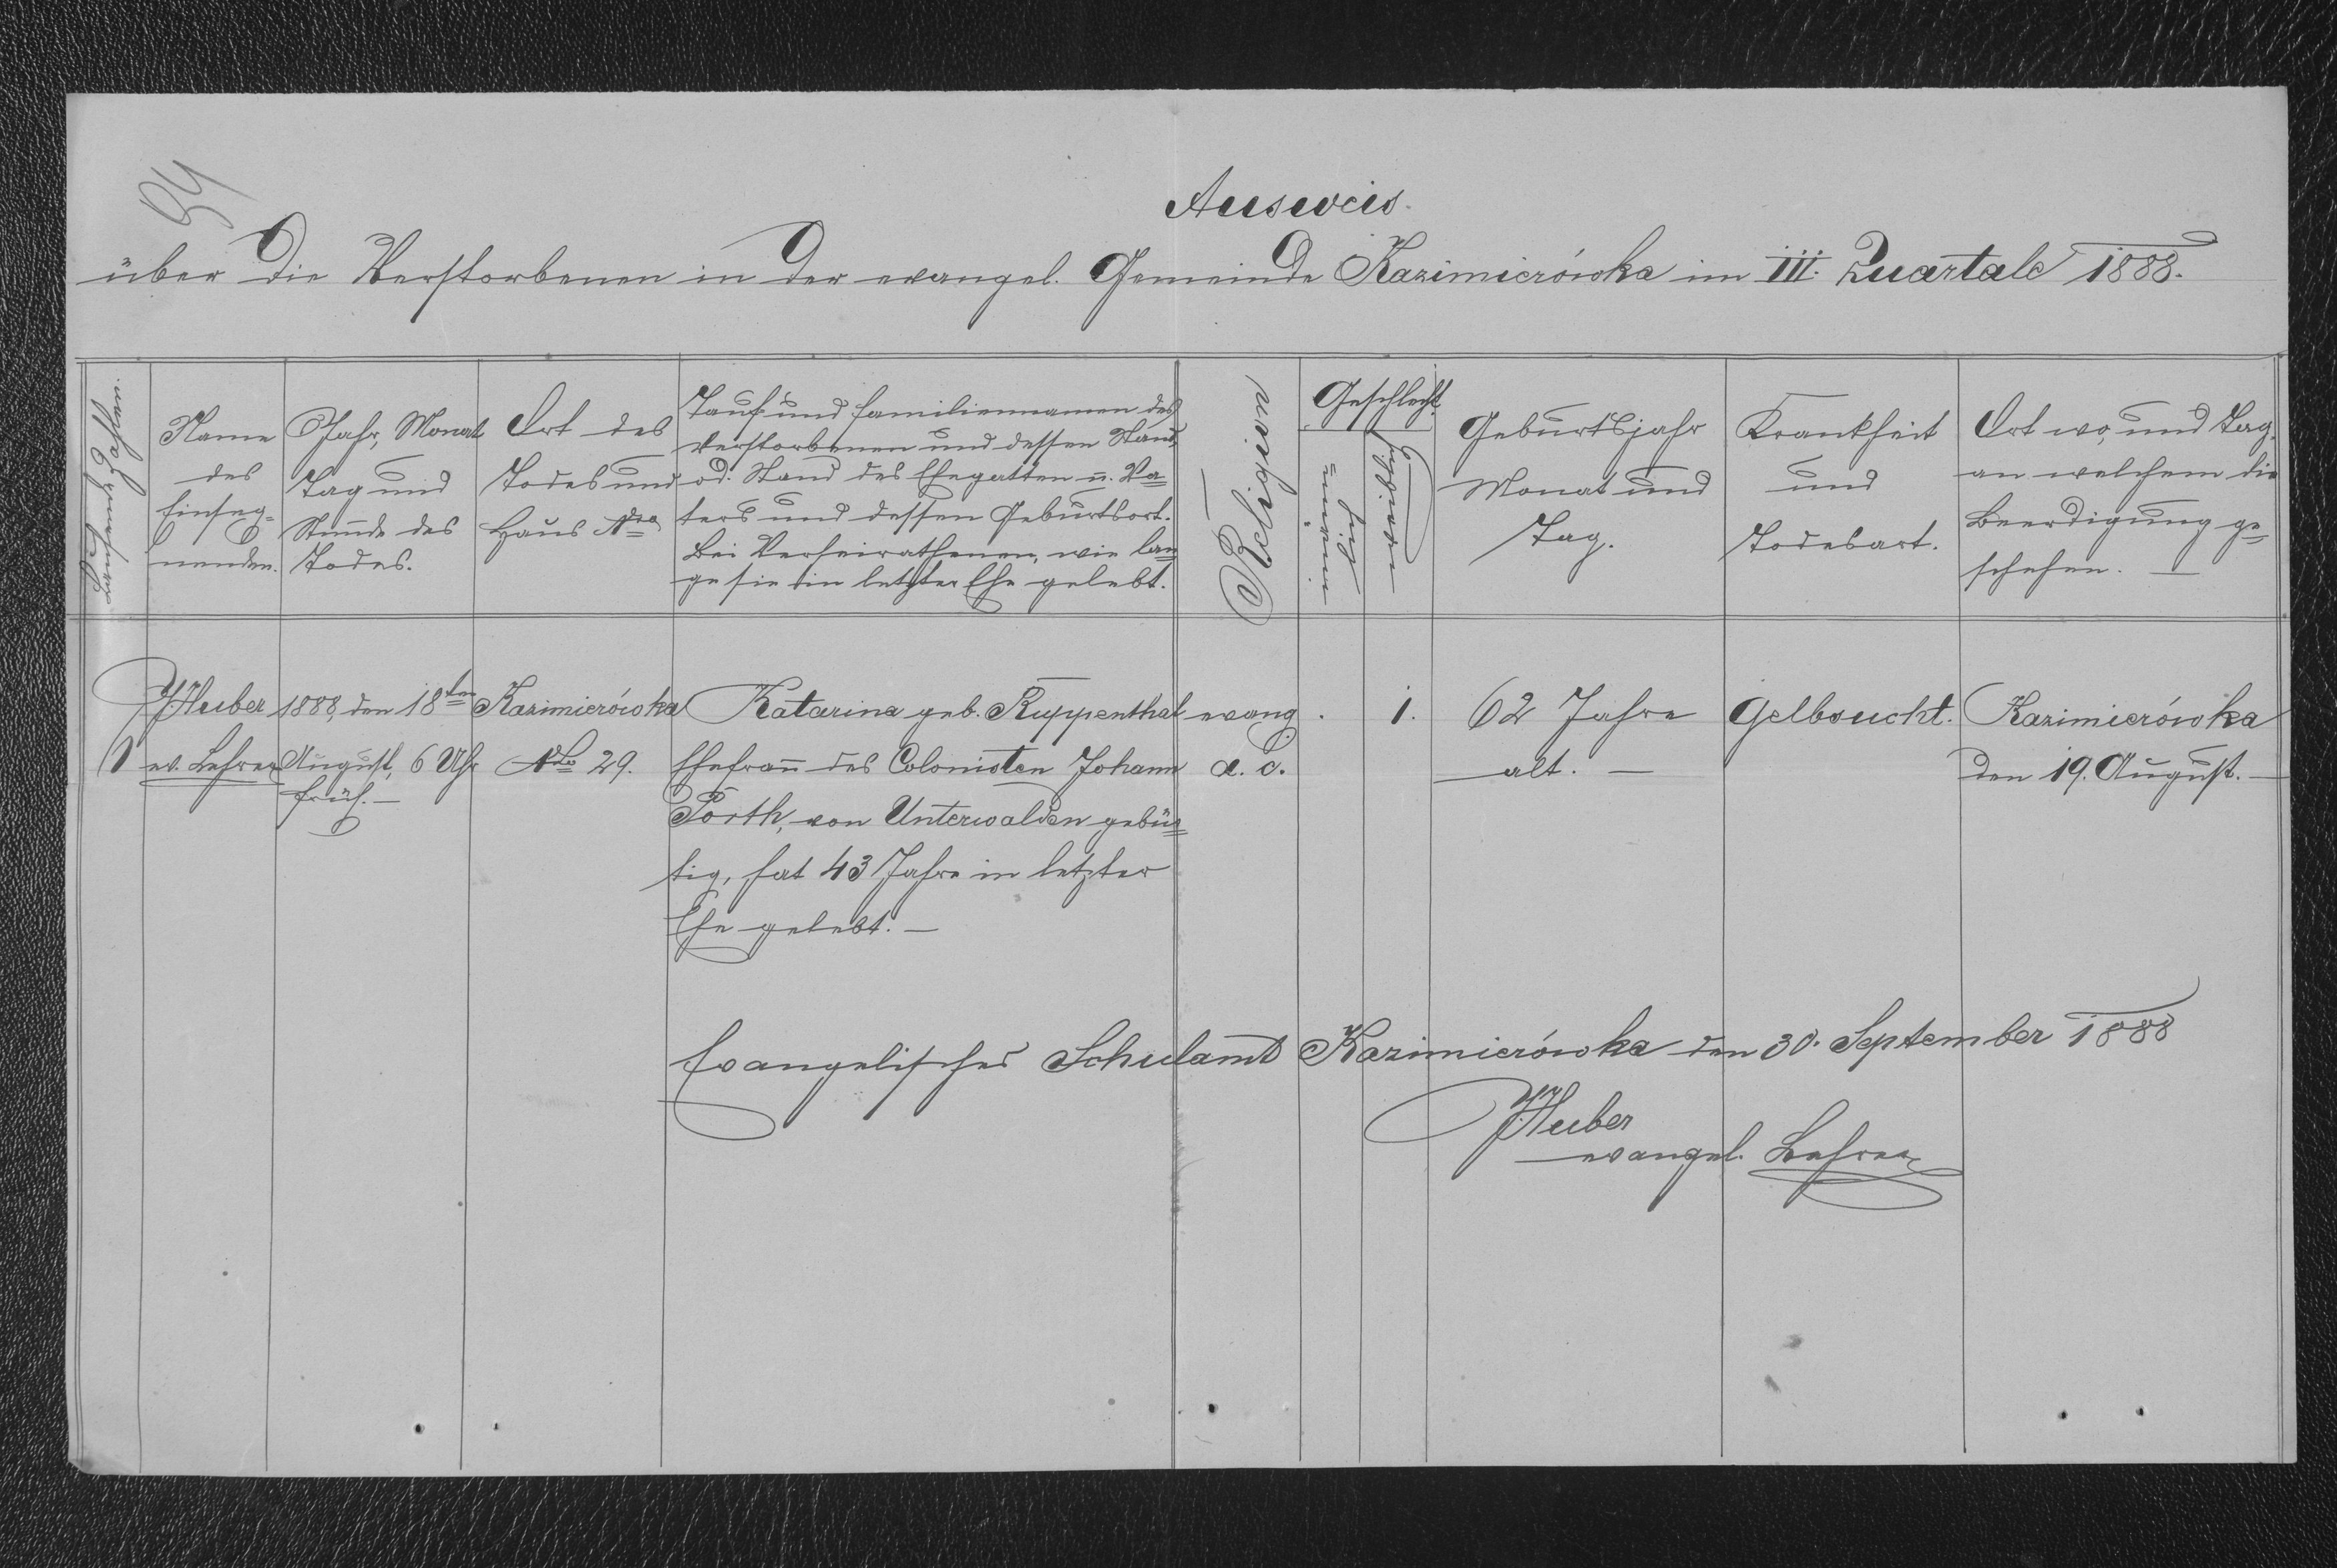 94
Ausweis.
über die Verstorbenen in der evangel. Gemeinde Kazimierówka im III. Quartale 1888.
Laufende Zahlen.
Name
des
Einseg=
nenden.
Jahr, Monat
Tag und
Stunde des
Todes.
Ort des
Todes und
Haus Nro
Tauf und Familiennamen des
Verstorbenen und dessen Stand
od. Stand des Ehegatten u. Va=
ters und dessen Geburtsort.
Bei Verheiratheten, wie lan=
ge sie in letzter Ehe gelebt.
Religion
Geschlecht.
männlich
weiblich
Geburtsjahr
Monat und
Tag.
Krankheit
und
Todesart.
Ort wo, und Tag,
an welchem die
Beerdigung ge=
schehen. —
1
J. Huber
ev. Lehrer
1888, den 18ten
August, 6 Uhr
früh. —
Kazimierówka
Nro 29.
Katarina geb. Ruppenthal
Ehefrau des Colonisten Johann
Porth, von Unterwalden gebür=
tig, hat 43 Jahre in letzter
Ehe gelebt. —
evang.
a. c.
.
1.
62 Jahre
alt. —
Gelbsucht.
Kazimierówka
den 19. August. —
Evangelisches Schulamt Kazimierówka den 30. September 1888
J. Huber
evangel. Lehrer